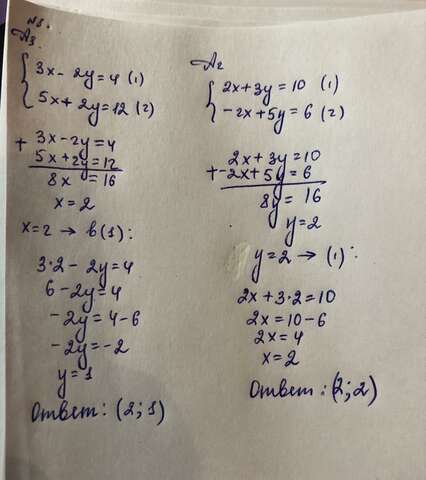 №1.
А3
3x - 2y = 4 (1)
5x + 2y = 12 (2)
+ 3x - 2y = 4
5x + 2y = 12
8x = 16
x = 2
x = 2 → в (1):
3·2 - 2y = 4
6 - 2y = 4
-2y = 4 - 6
-2y = -2
y = 1
Ответ: (2; 1)
А2
2x + 3y = 10 (1)
-2x + 5y = 6 (2)
2x + 3y = 10
+ -2x + 5y = 6
8y = 16
y = 2
y = 2 → (1):
2x + 3·2 = 10
2x = 10 - 6
2x = 4
x = 2
Ответ: (2; 2)